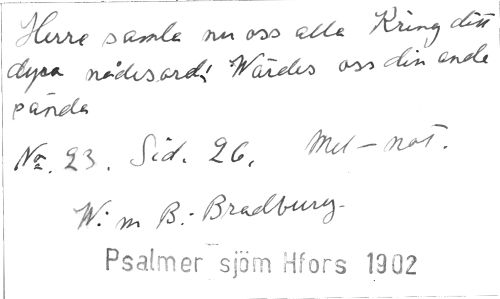 Herre samla nu oss alla Kring ditt
dyra nådesord! Wärdes oss din ande
sända
No. 23. Sid. 26. Mel-not.
W:m B:. Bradbury.
Psalmer sjöm Hfors 1902